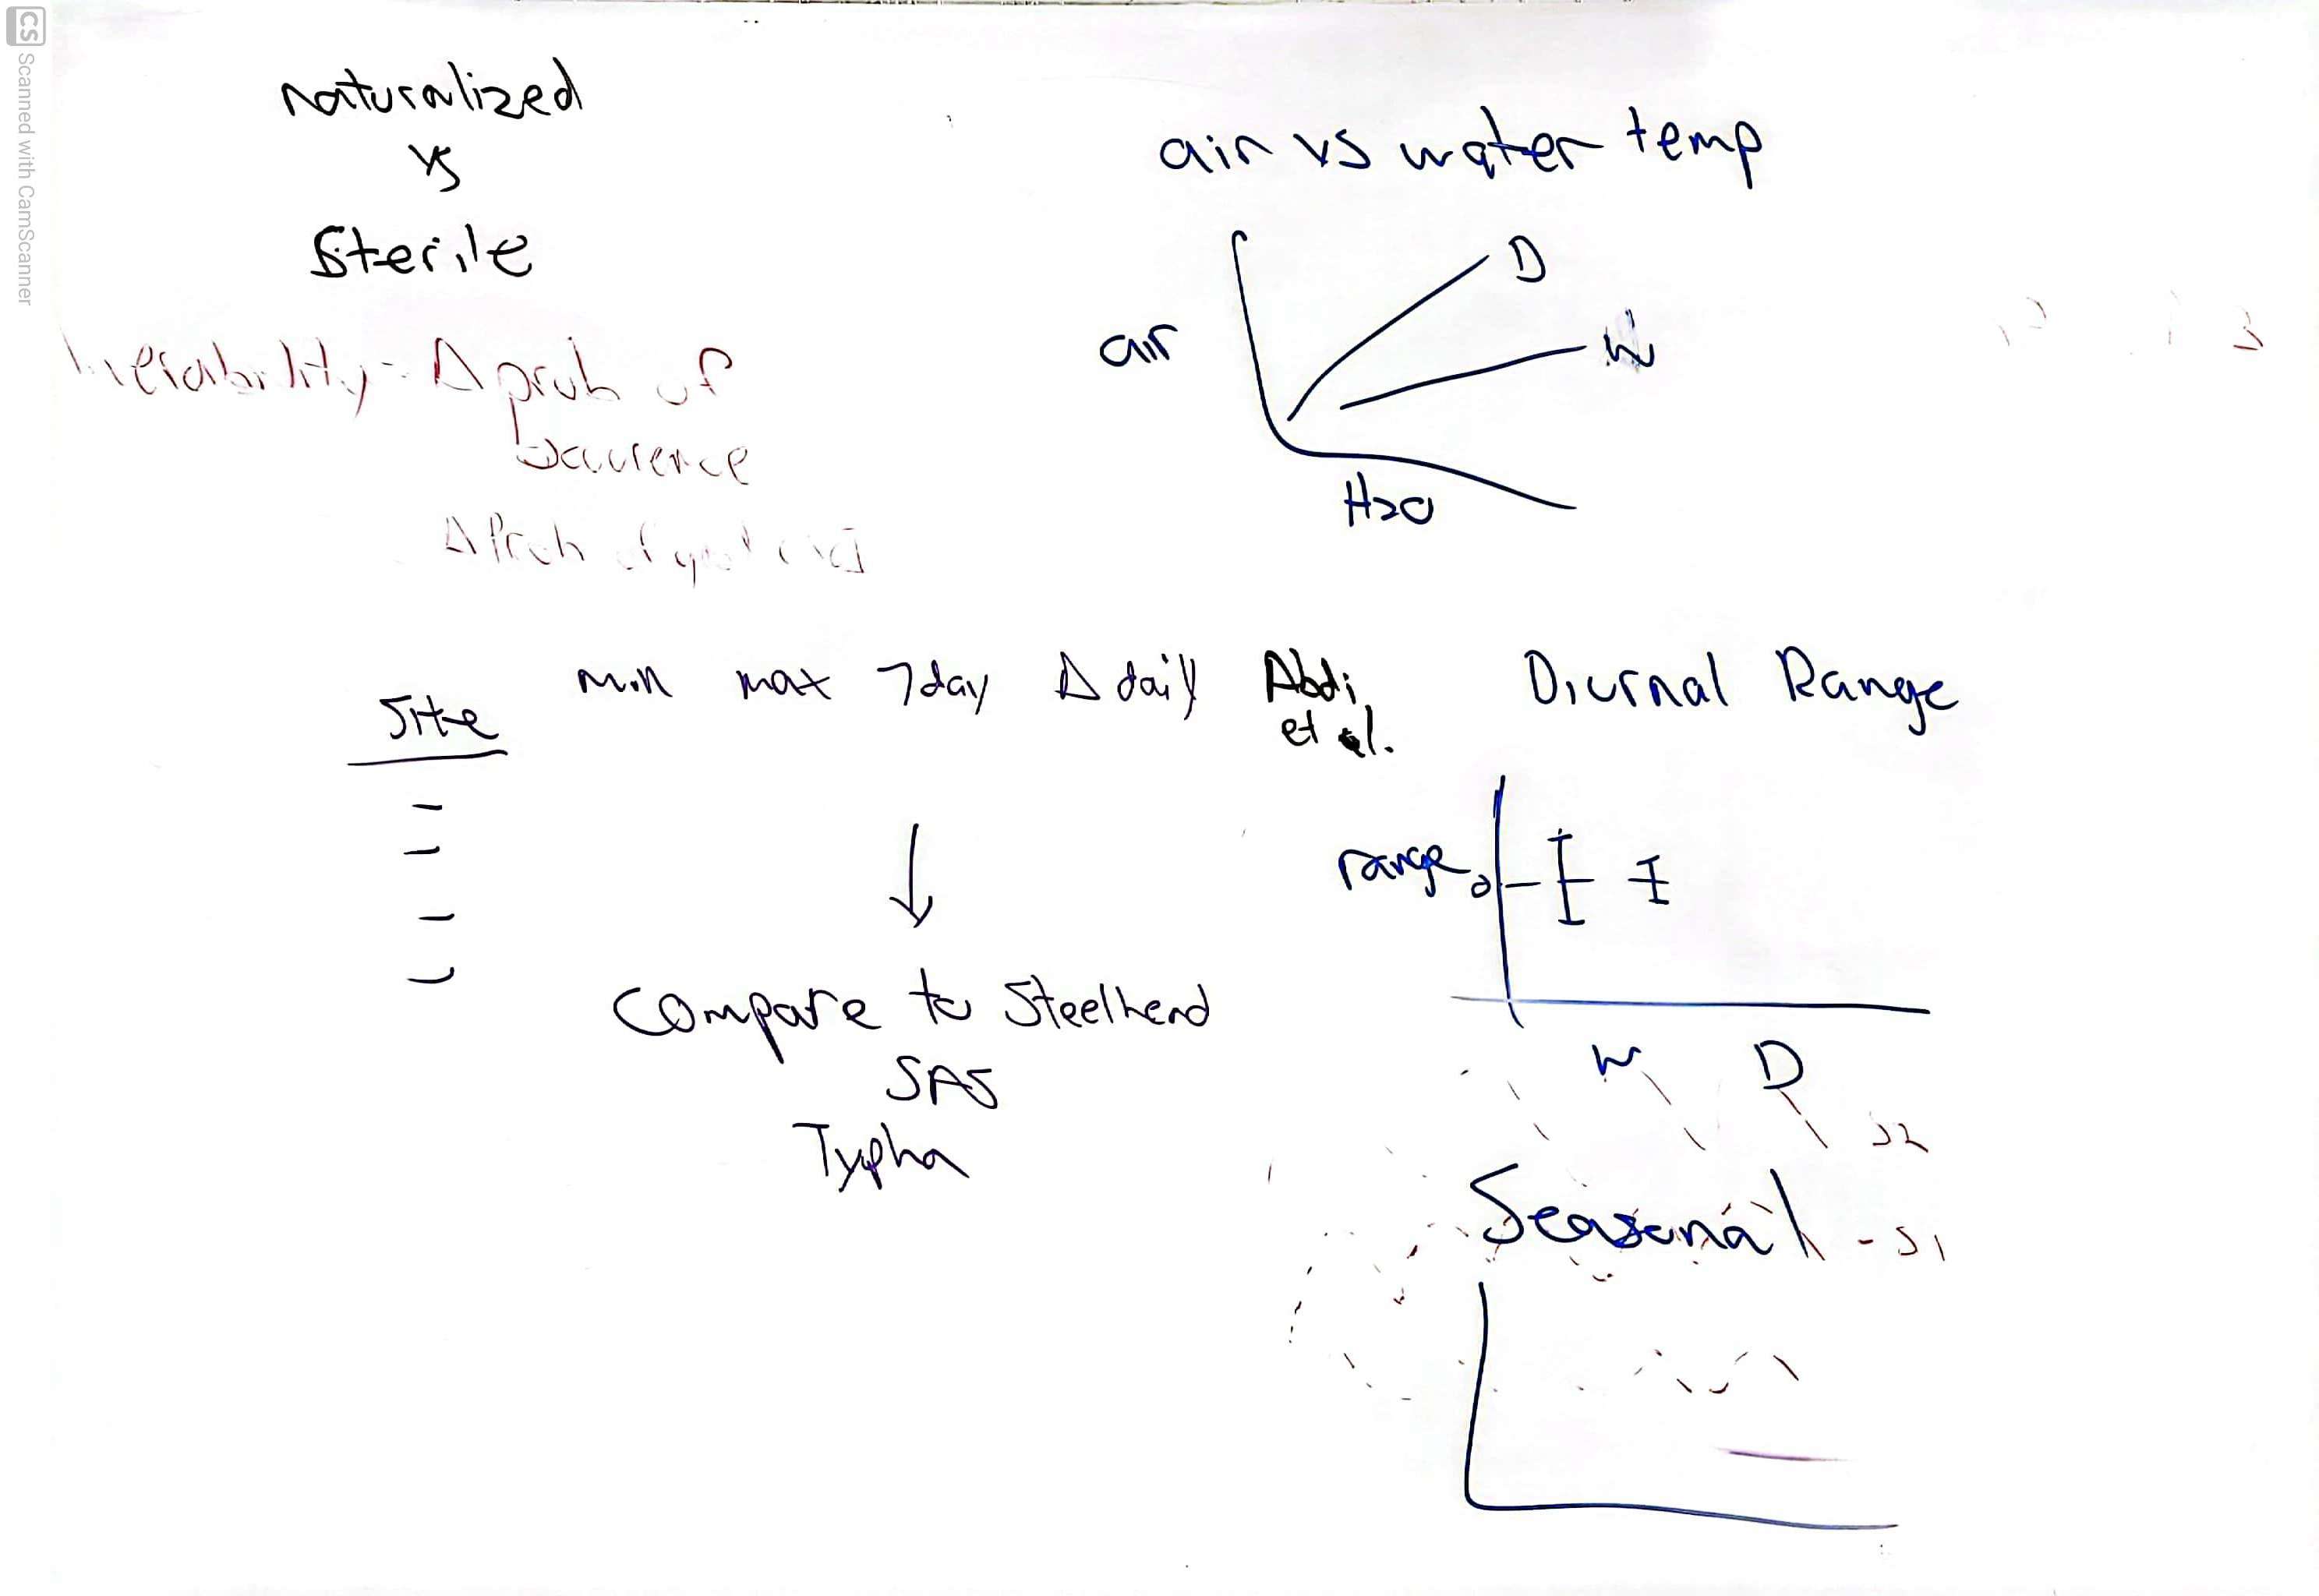 CS Scanned with CamScanner
Naturalized
vs
Sterile
Δ prob of
occurence
Δ Prob
air vs water temp
D
air
W
H2O
3
Site
min max 7day Δ daily Abdi
et al.
Compare to Steelhead
SAS
Typha
Diurnal Range
range
0
W D
S2
Seasonal
- S1